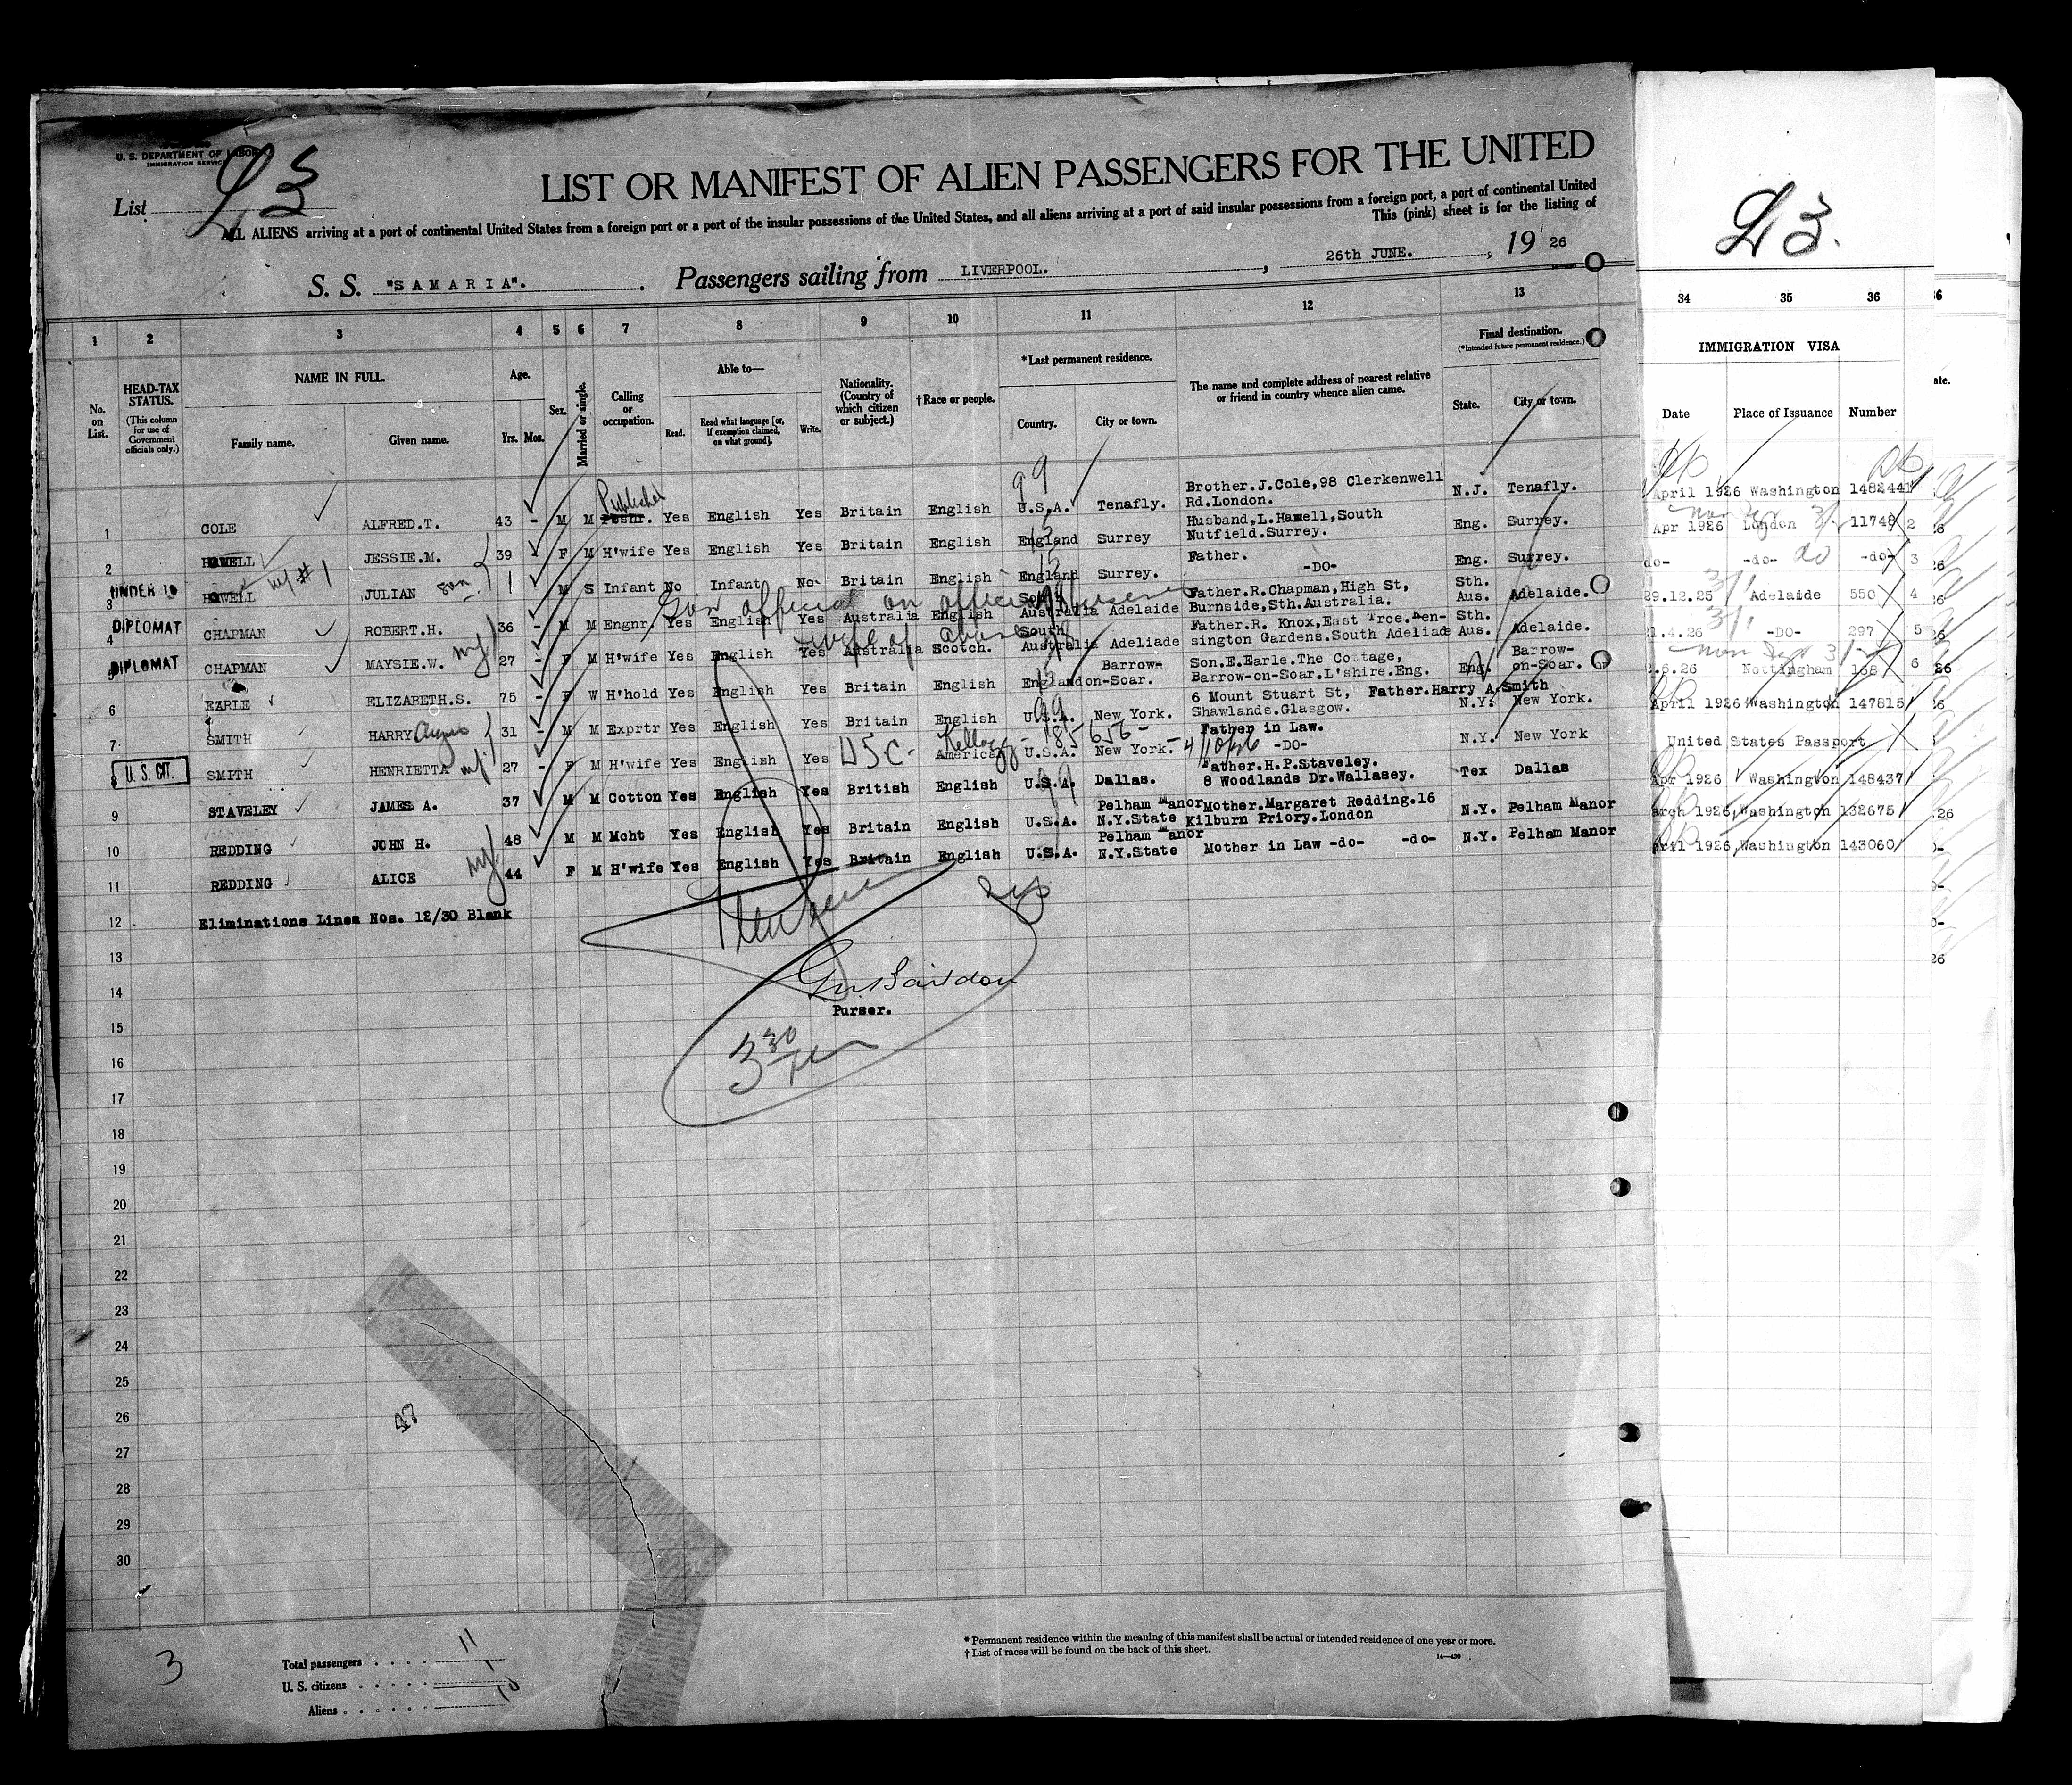 U. S. DEPARTMENT OF LABOR
IMMIGRATION SERVICE
List L3
LIST OR MANIFEST OF ALIEN PASSENGERS FOR THE UNITED
ALL ALIENS arriving at a port of continental United States from a foreign port or a port of the insular possessions of the United States, and all aliens arriving at a port of said insular possessions from a foreign port, a port of continental United
This (pink) sheet is for the listing of
S. S. "SAMARIA". Passengers sailing from LIVERPOOL. , 26th JUNE. , 19 26
L3.
1 2 3 4 5 6 7 8 9 10 11 12 13 34 35 36
No. on List.
HEAD-TAX STATUS.
(This column for use of Government officials only.)
NAME IN FULL.
Family name. Given name.
Age.
Yrs. Mos.
Sex.
Married or single.
Calling or occupation.
Able to—
Read. Read what language [or, if exemption claimed, on what ground]. Write.
Nationality. (Country of which citizen or subject.)
†Race or people.
*Last permanent residence.
Country. City or town.
The name and complete address of nearest relative or friend in country whence alien came.
Final destination.
(*Intended future permanent residence.)
State. City or town.
IMMIGRATION VISA
Date Place of Issuance Number
1 COLE ALFRED.T. 43 - M M Publisher Yes English Yes Britain English U.S.A. Tenafly. Brother.J.Cole,98 Clerkenwell Rd.London. N.J. Tenafly. April 1926 Washington 148244
2 HOWELL JESSIE.M. 39 - F M H'wife Yes English Yes Britain English England Surrey Husband,L.Howell,South Nutfield.Surrey. Eng. Surrey. Apr 1926 London 11748
3 UNDER 16 HOWELL JULIAN son 1 M S Infant No Infant No Britain English England Surrey. Father. -DO- Eng. Surrey. do- -do- -do-
4 DIPLOMAT CHAPMAN ROBERT.H. 36 - M M Engnr. Yes English Yes Australia English South Australia Adelaide Father.R.Chapman,High St, Burnside,Sth.Australia. Sth. Aus. Adelaide. 29.12.25 Adelaide 550
Gov official on official
wife of above
5 DIPLOMAT CHAPMAN MAYSIE.W. 27 - F M H'wife Yes English Yes Australia Scotch. South Australia Adeliade Father.R. Knox,East Trce.Kensington Gardens.South Adeliade Sth. Aus. Adelaide. 1.4.26 -DO- 297
6 EARLE ELIZABETH.S. 75 - F W H'hold Yes English Yes Britain English England Barrow-on-Soar. Son.E.Earle.The Cottage, Barrow-on-Soar.L'shire.Eng. Eng. Barrow-on-Soar. 2.6.26 Nottingham 168
7 SMITH HARRY Angus 31 - M M Exprtr Yes English Yes Britain English U.S.A. New York. 6 Mount Stuart St, Father.Harry A.Smith Shawlands.Glasgow. N.Y. New York. April 1926 Washington 147815
8 U. S. CIT. SMITH HENRIETTA 27 - F M H'wife Yes English Yes USC. American U.S.A. New York. Father in Law. -DO- N.Y. New York United States Passport
9 STAVELEY JAMES A. 37 M M Cotton Yes English Yes British English U.S.A. Dallas. Father.H.P.Staveley. 8 Woodlands Dr.Wallasey. Tex Dallas Apr 1926 Washington 148437
10 REDDING JOHN H. 48 M M Mcht Yes English Yes Britain English U.S.A. Pelham Manor N.Y.State Mother.Margaret Redding.16 Kilburn Priory.London N.Y. Pelham Manor arch 1926,Washington 132675
11 REDDING ALICE 44 F M H'wife Yes English Yes Britain English U.S.A. Pelham Manor N.Y.State Mother in Law -do- -do- N.Y. Pelham Manor pril 1926,Washington 143060
12 Eliminations Lines Nos. 12/30 Blank
13
14
Purser.
15
3 30
16
17
18
19
20
21
22
23
24
25
26
47
27
28
29
30
3
Total passengers 11
U. S. citizens 1
Aliens 10
* Permanent residence within the meaning of this manifest shall be actual or intended residence of one year or more.
† List of races will be found on the back of this sheet.
14—430